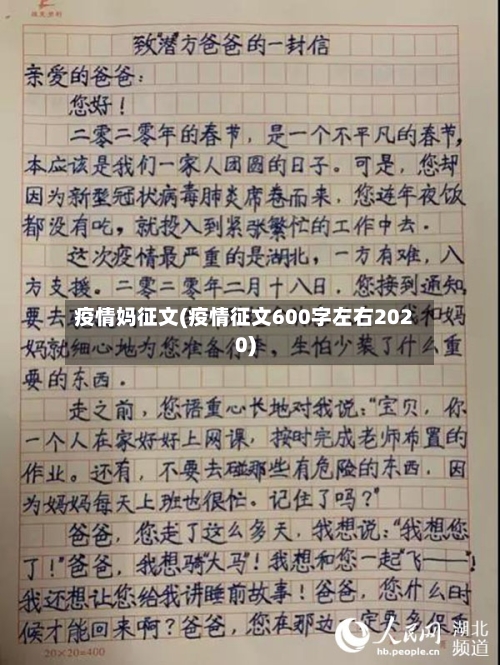 致“潜”方爸爸的一封信
亲爱的爸爸：
您好！
二零二零年的春节，是一个不平凡的春节，
本应该是我们一家人团圆的日子。可是，您却
因为新型冠状病毒肺炎席卷而来，您连年夜饭
都没有吃，就投入到紧张繁忙的工作中去。
这次疫情最严重的是湖北，一方有难，八
方支援。二零二零年二月十八日，您接到通知，
要去
我和妈
疫情妈征文(疫情征文600字左右202
0)
妈就细心地为您准备行
生怕少装了什么重
要的东西。
走之前，您语重心长地对我说：“宝贝，你
一个人在家好好上网课，按时完成老师布置的
作业。还有，不要去碰那些有危险的东西，因
为妈妈每天上班也很忙。记住了吗？”
爸爸，您走了这么多天，我想说：“我想您
了！”爸爸，我想骑“大马”！我想和您一起“飞——”！
我还想让您给我讲睡前故事！爸爸，您什么时
候才能回来啊？爸爸，您在那边一定要多
20×20=400
人民网
hb.people.cn
湖北
频道